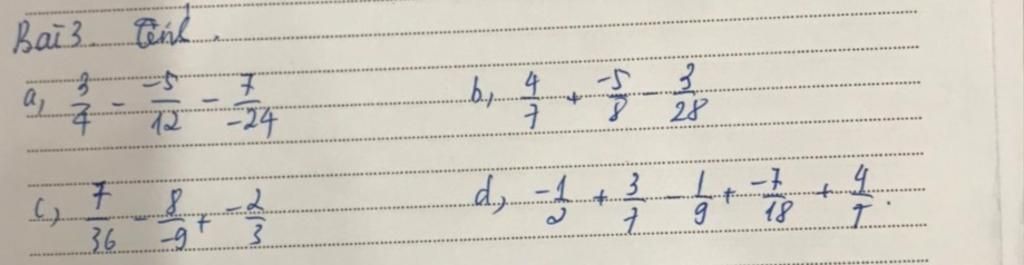 Bài 3. Tính.
a, 3/4 - -5/12 - 7/-24 b, 4/7 + -5/8 - 3/28
c, 7/36 - 8/-9 + -2/3 d, -1/2 + 3/7 - 1/9 + -7/18 + 4/7.